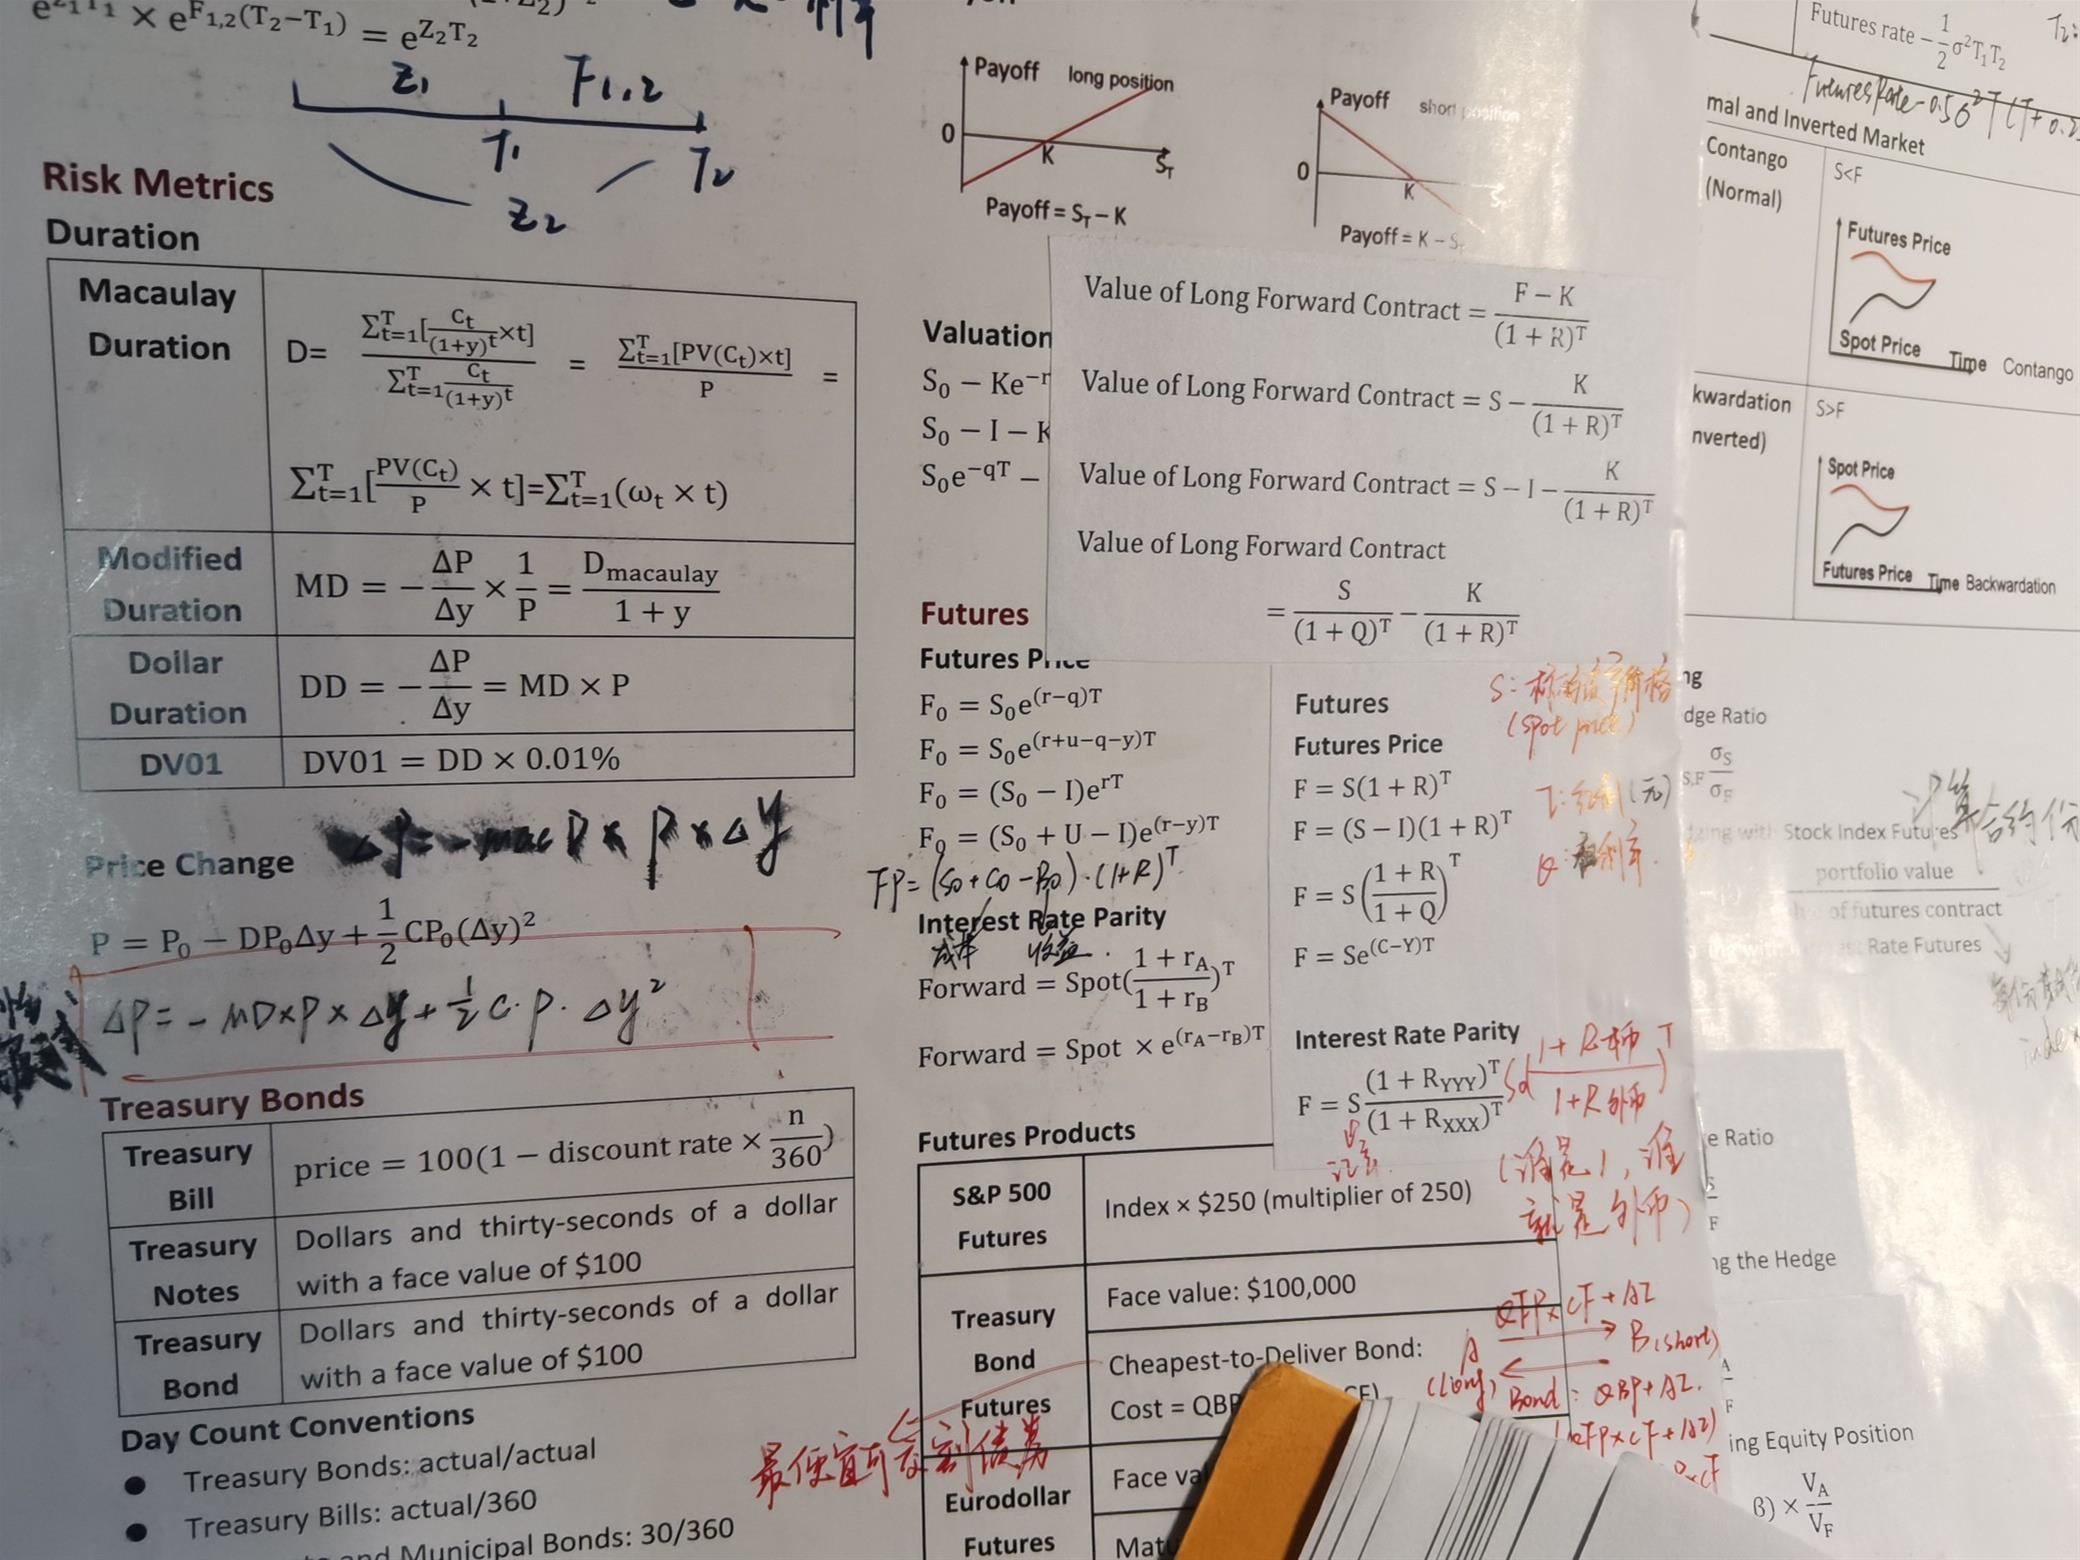 e^{Z_1T_1} × e^{F_{1,2}(T_2−T_1)} = e^{Z_2T_2}
Z_1 F_{1,2}
T_1 T_2
Z_2
Risk Metrics
Duration
Macaulay Duration
D= \frac{∑_{t=1}^{T}[\frac{C_t}{(1+y)^t}×t]}{∑_{t=1}^{T}\frac{C_t}{(1+y)^t}} = \frac{∑_{t=1}^{T}[PV(C_t)×t]}{P} =
∑_{t=1}^{T}[\frac{PV(C_t)}{P} × t]=∑_{t=1}^{T}(ω_t × t)
Modified Duration
MD = −\frac{ΔP}{Δy} × \frac{1}{P} = \frac{D_{macaulay}}{1 + y}
Dollar Duration
DD = −\frac{ΔP}{Δy} = MD × P
DV01
DV01 = DD × 0.01%
ΔP = - mac D × P × Δy
Price Change
P = P_0 − DP_0Δy + \frac{1}{2}CP_0(Δy)^2
ΔP = - MD×P×Δy + \frac{1}{2} C·P·Δy^2
Treasury Bonds
Treasury Bill
price = 100(1 − discount rate × \frac{n}{360})
Treasury Notes
Dollars and thirty-seconds of a dollar
with a face value of $100
Treasury Bond
Dollars and thirty-seconds of a dollar
with a face value of $100
Day Count Conventions
● Treasury Bonds: actual/actual
● Treasury Bills: actual/360
and Municipal Bonds: 30/360
Payoff long position
0 K S_T
Payoff = S_T − K
Payoff short position
0 K S
Payoff = K − S
Valuation
S_0 − Ke^{−r
S_0 − I − K
S_0e^{−qT} −
Value of Long Forward Contract = \frac{F − K}{(1 + R)^T}
Value of Long Forward Contract = S − \frac{K}{(1 + R)^T}
Value of Long Forward Contract = S − I − \frac{K}{(1 + R)^T}
Value of Long Forward Contract
= \frac{S}{(1 + Q)^T} − \frac{K}{(1 + R)^T}
Futures
Futures Price
F_0 = S_0e^{(r−q)T}
F_0 = S_0e^{(r+u−q−y)T}
F_0 = (S_0 − I)e^{rT}
F_0 = (S_0 + U − I)e^{(r−y)T}
FP = (S0 + C0 − B0)·(1+R)^T
成本 收益
Interest Rate Parity
Forward = Spot(\frac{1 + r_A}{1 + r_B})^T
Forward = Spot × e^{(r_A−r_B)T}
Futures
Futures Price
F = S(1 + R)^T
F = (S − I)(1 + R)^T
F = S(\frac{1 + R}{1 + Q})^T
F = Se^{(C−Y)T}
Interest Rate Parity
F = S\frac{(1 + R_{YYY})^T}{(1 + R_{XXX})^T}
S: 标的资产价格
(spot price)
I: 红利(元)
Q: 利率
1+R本币 T
1+R外币
(谁是1, 谁
就是外币)
Futures Products
S&P 500 Futures
Index × $250 (multiplier of 250)
Treasury Bond Futures
Face value: $100,000
Cheapest-to-Deliver Bond:
Cost = QBP CF)
最便宜可交割债券
QFP×CF+AI
A B(short)
(Long) Bond: QBP+AI.
(QFP×CF+AI)
Eurodollar Futures
Face va
Matu
Futures rate − \frac{1}{2}σ^2T_1T_2
T_2:
Futures Rate - 0.5σ^2T(T+0.2
mal and Inverted Market
Contango (Normal)
S<F
Futures Price
Spot Price
Time Contango
kwardation
nverted)
S>F
Spot Price
Futures Price Time Backwardation
ng
dge Ratio
S,F \frac{σ_S}{σ_F}
计算合约价
ing with Stock Index Futures
portfolio value
of futures contract
Rate Futures
index
e Ratio
S
F
ng the Hedge
A
F
ing Equity Position
β) × \frac{V_A}{V_F}